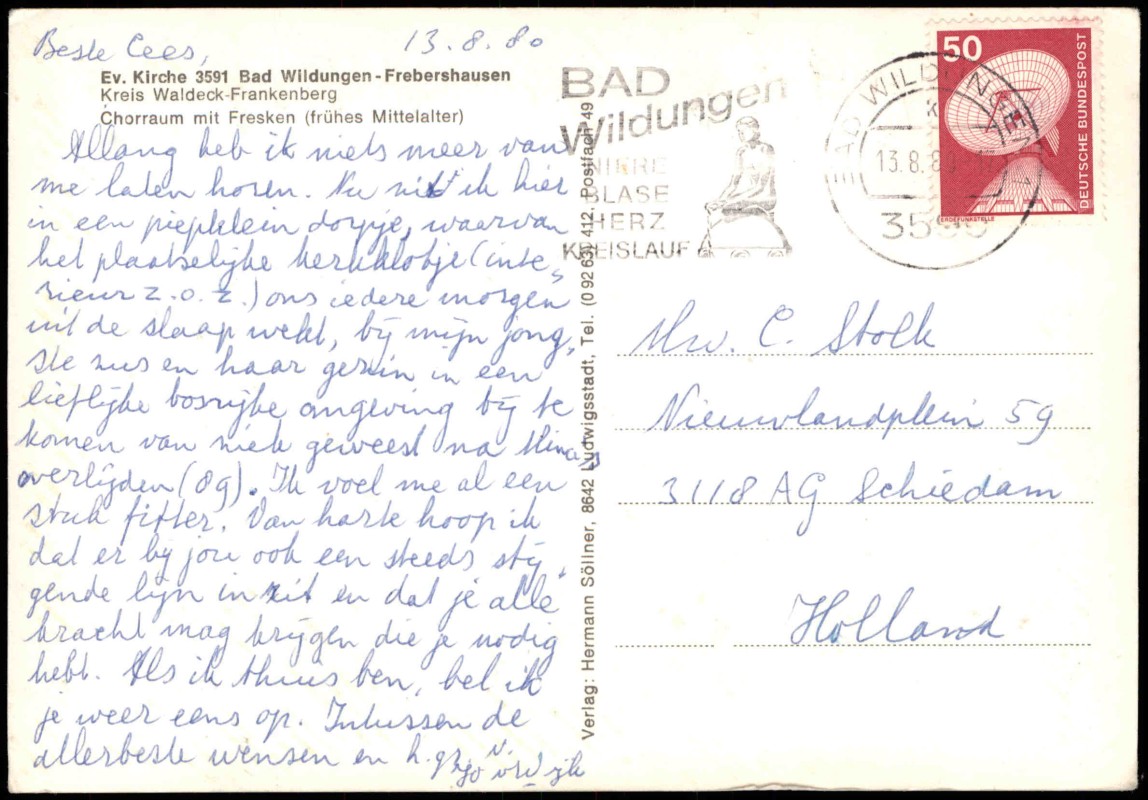 Beste Cees, 13.8.80
Ev. Kirche 3591 Bad Wildungen-Frebershausen
Kreis Waldeck-Frankenberg
Chorraum mit Fresken (frühes Mittelalter)
Allang heb ik niets meer van
me laten horen. Nu zit ik hier
in een piepklein dorpje, waarvan
het plaatselijke kerkklokje (inte-
rieur z.o.z.) ons iedere morgen
uit de slaap wekt, bij mijn jong-
ste zus en haar gezin in een
lieflijke bosrijke omgeving bij te
komen van ziek geweest na
overlijden (89). Ik voel me al een
stuk fitter. Van harte hoop ik
dat er bij jou ook een steeds stij-
gende lijn in zit en dat je alle
kracht mag krijgen die je nodig
hebt. Als ik thuis ben, bel ik
je weer eens op. Intussen de
allerbeste wensen en h.gr.
v.
Verlag: Hermann Söllner, 8642 Ludwigsstadt, Tel. (0 92 63) 412, Postfach 49
BAD
Wildungen
NIERE
BLASE
HERZ
KREISLAUF
BAD WILDUNGEN
13.8.8
50
DEUTSCHE BUNDESPOST
ERDEFUNKSTELLE
Mw. C. Stolk
Nieuwlandplein 59
3118 AG Schiedam
Holland